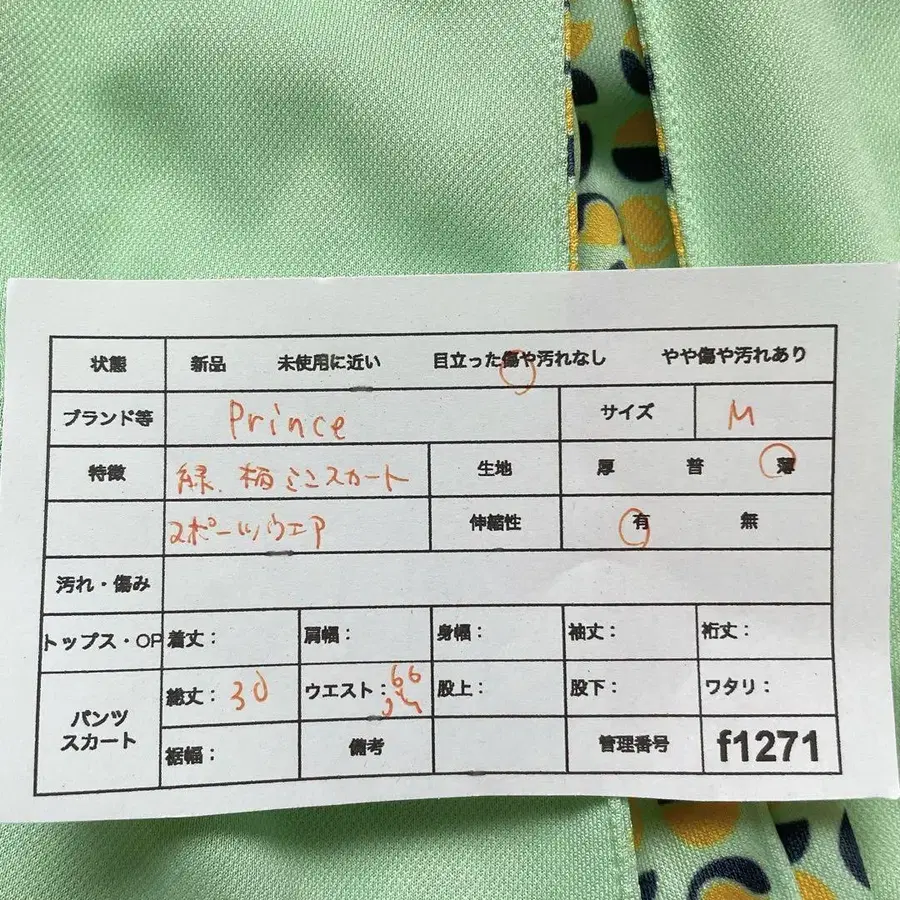 状態 新品 未使用に近い 目立った傷や汚れなし やや傷や汚れあり
ブランド等 Prince サイズ M
特徴 緑、柄ミニスカート 生地 厚 普 薄
スポーツウエア 伸縮性 有 無
汚れ・傷み
トップス・OP 着丈: 肩幅: 身幅: 袖丈: 裄丈:
パンツ
スカート
総丈:30 ウエスト:66 股上: 股下: ワタリ:
裾幅: 備考 管理番号 f1271